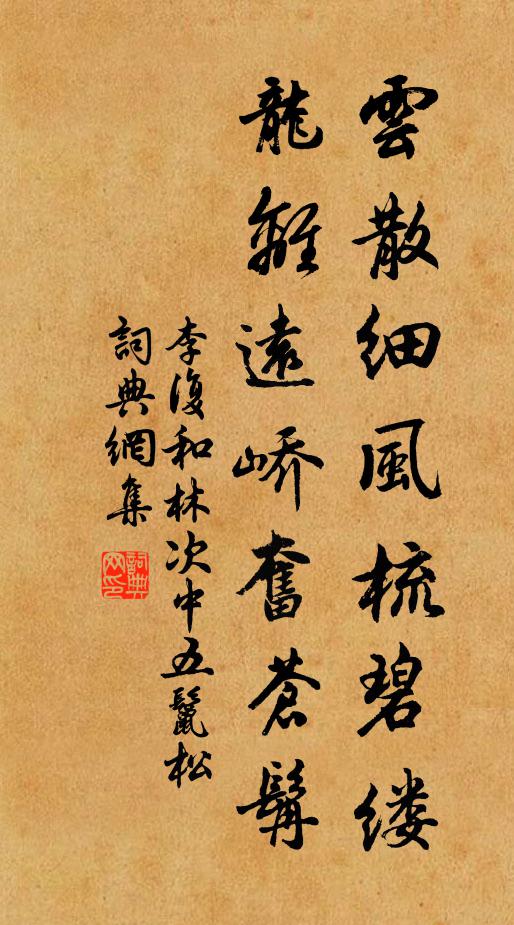 雲散细風梳碧缕
龍離遠嶠奮蒼髯
李復和林次中五鬣松
詞典網集
詞典网印